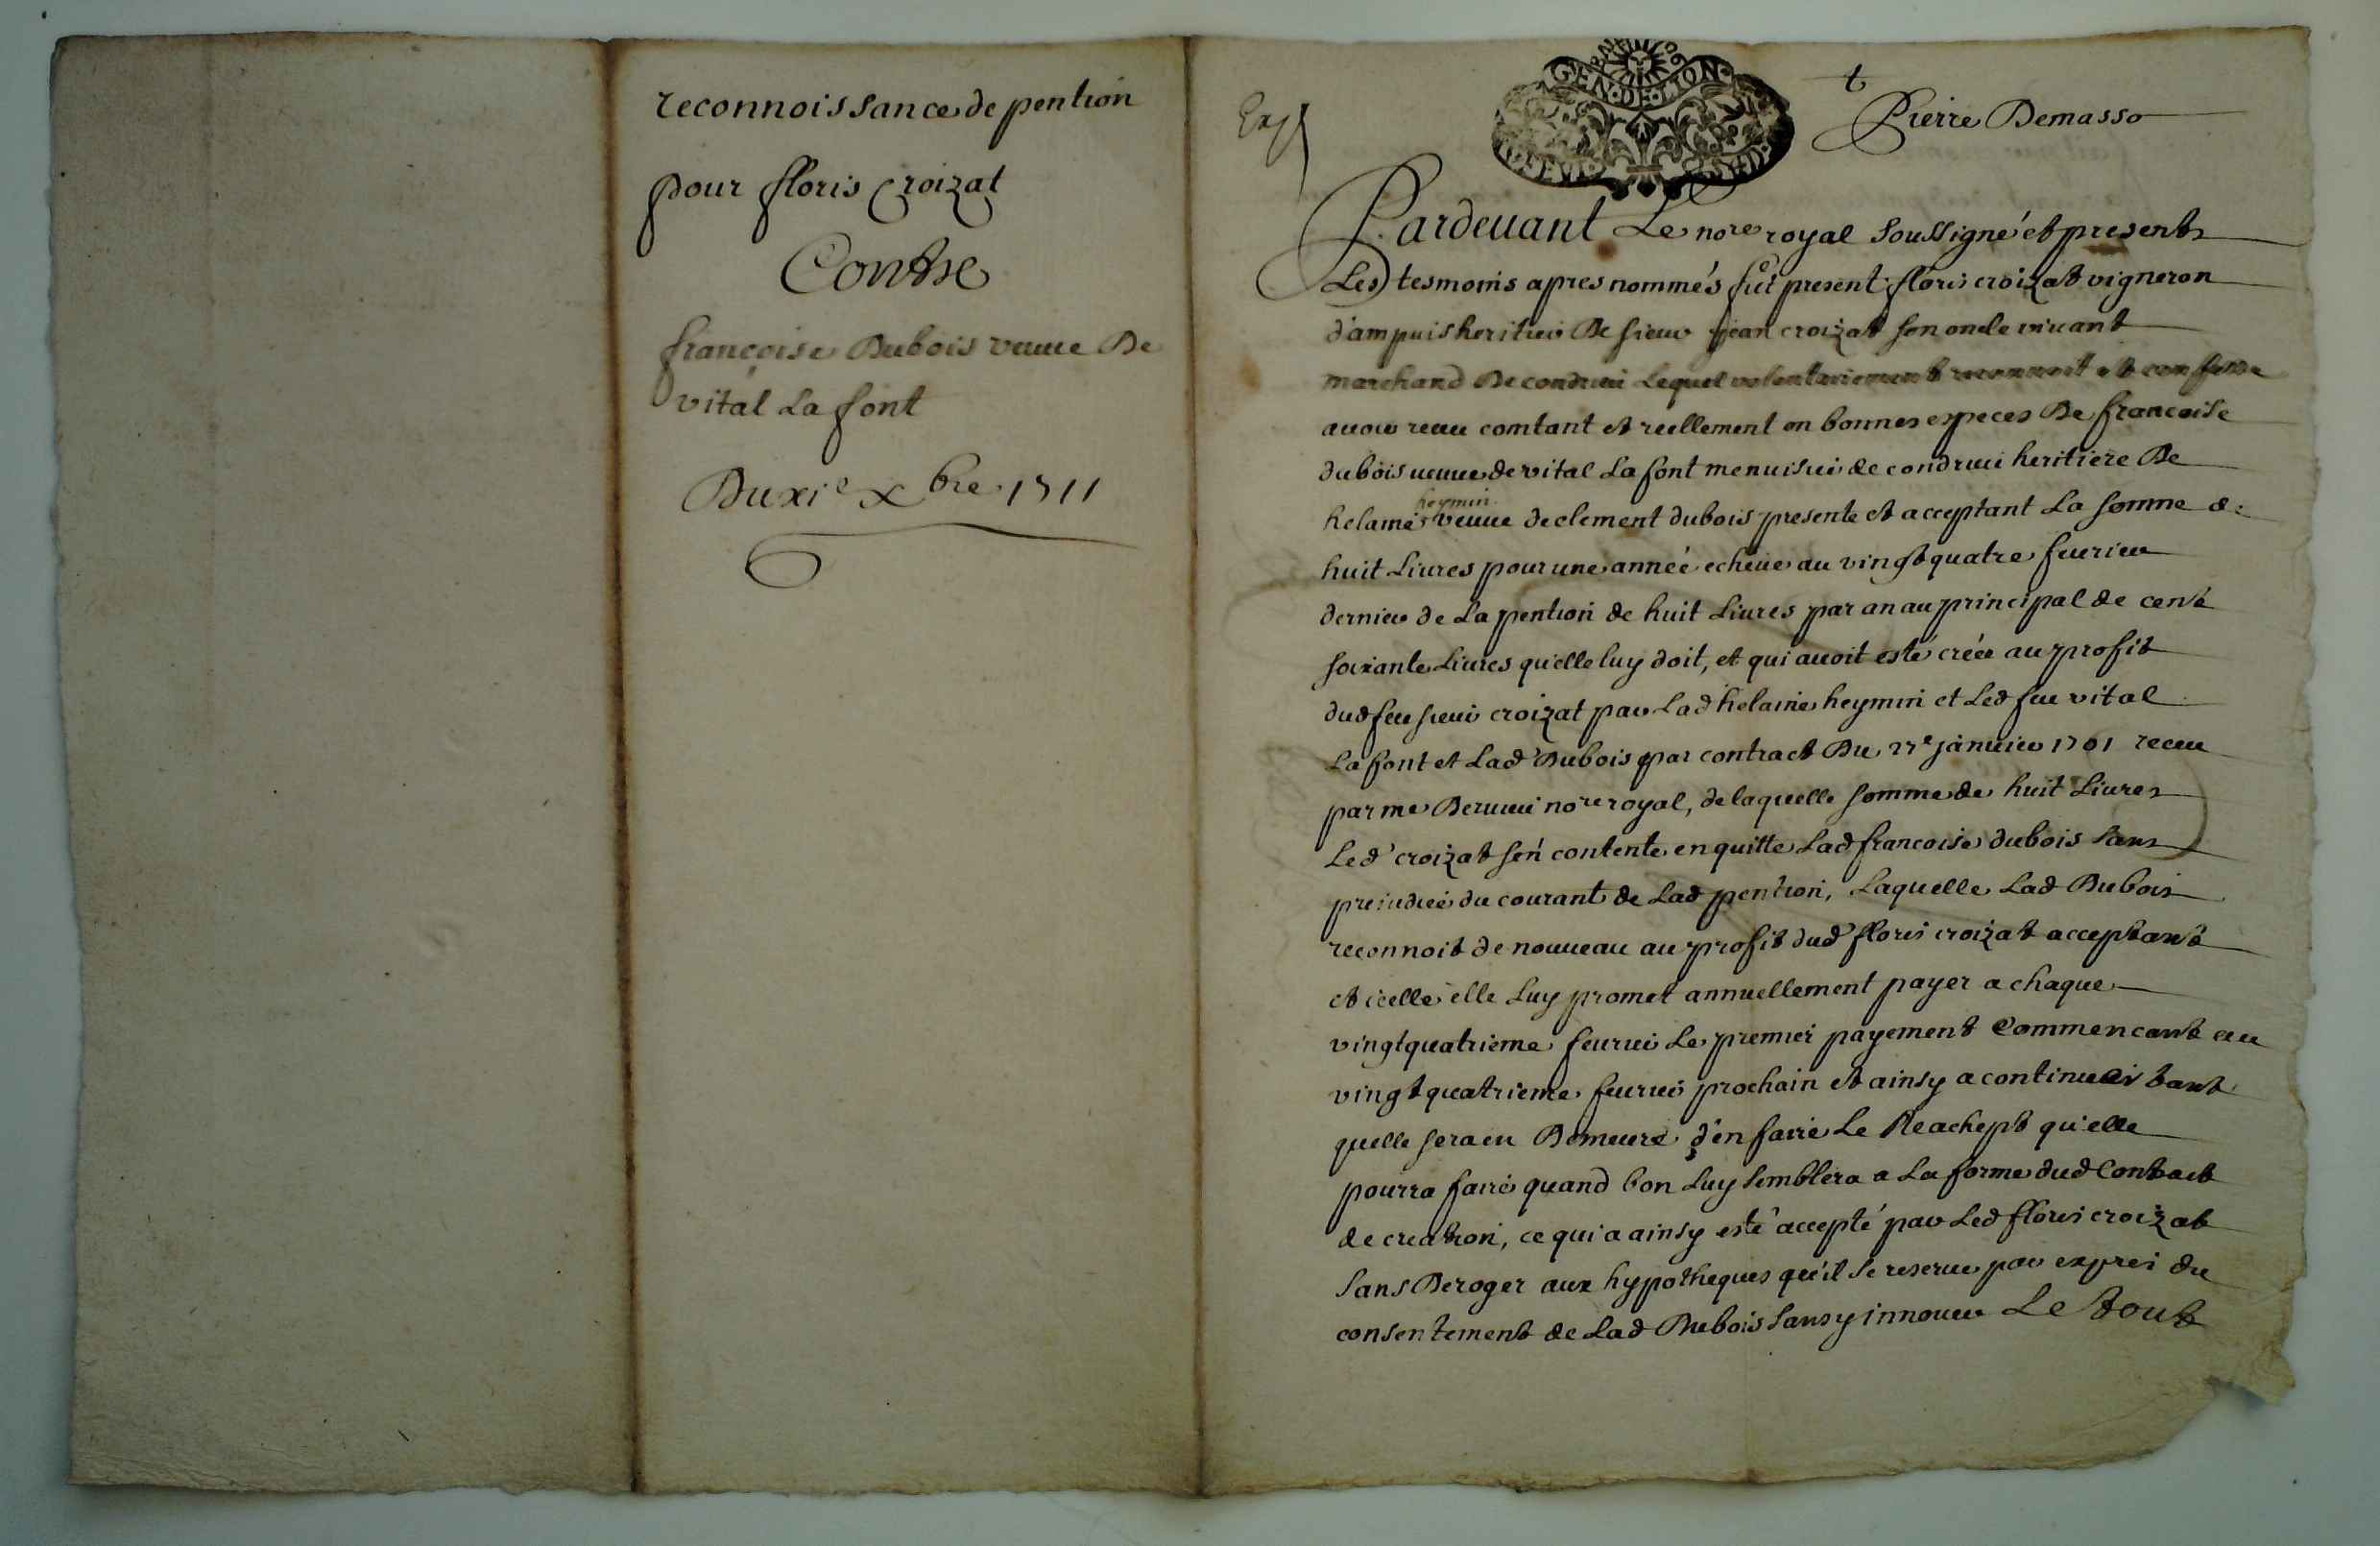 reconnoissance de pention
pour floris Croizat
Contre
françoise Dubois veuve De
vital La font
Du xi^e x^bre 1711
Exp
GEN DE LION
Pierre Demasso
Pardeuant Le no^re royal soussigné et presents
Les tesmoins apres nommés fut present floris croizat vigneron
d'ampuis heritier De sieur jean croizat son oncle viuant
marchand De condrieu Lequel volontairement reconnoit et confesse
auoir receu comtant et reellement en bonnes especes De francoise
dubois veuue de vital La font menuisier de condrieu heritiere De
helaine heymin veuue de clement dubois presente et acceptant La somme de
huit Liures pour une année echeue au vingt quatre feurier
dernier de La pention de huit Liures par an au principal de cent
soixante Liures qu'elle luy doit, et qui auoit esté créée au profit
dud feu sieur croizat par Lad helaine heymin et Led feu vital
La font et Lad Dubois par contract Du 27^e januier 1701 receu
par me no^re royal, de laquelle somme de huit Liures
Led croizat s'en contente en quitte Lad francoise dubois sans
preiudice du courant de Lad pention, Laquelle Lad Dubois
reconnoit de nouueau au profit dud floris croizat acceptant
et icelle elle Luy promet annuellement payer a chaque
vingtquatrieme feurier Le premier payement Commencant au
vingt quatrieme feurier prochain et ainsy a continuer tant
quelle sera en Demeure d'en faire Le Reachept qu'elle
pourra faire quand bon Luy semblera a La forme dud Contract
de creation, ce qui a ainsy esté accepté par Led floris croizat
sans Deroger aux hypotheques qu'il se reserue par expres du
consentement de Lad Dubois sans y innouer Le tout